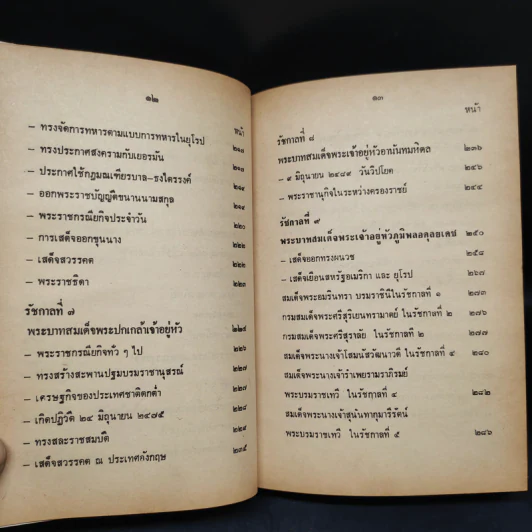 ๑๒
หน้า
– ทรงจัดการทหารตามแบบการทหารในยุโรป ๒๑๗
– ทรงประกาศสงครามกับเยอรมัน ๒๑๗
– ประกาศใช้กฎมณเฑียรบาล–ธงไตรรงค์ ๒๑๘
– ออกพระราชบัญญัติขนานนามสกุล ๒๑๙
– พระราชกรณียกิจประจำวัน ๒๒๐
– การเสด็จออกขุนนาง ๒๒๑
– เสด็จสวรรคต ๒๒๒
– พระราชธิดา ๒๒๓
รัชกาลที่ ๗
พระบาทสมเด็จพระปกเกล้าเจ้าอยู่หัว ๒๒๔
– พระราชกรณียกิจทั่ว ๆ ไป ๒๒๖
– ทรงสร้างสะพานปฐมบรมราชานุสรณ์ ๒๒๗
– เศรษฐกิจของประเทศชาติตกต่ำ ๒๒๘
– เกิดปฏิวัติ ๒๔ มิถุนายน ๒๔๗๕
– ทรงสละราชสมบัติ
– เสด็จสวรรคต ณ ประเทศอังกฤษ ๒๓๕
๑๓
หน้า
รัชกาลที่ ๘
พระบาทสมเด็จพระเจ้าอยู่หัวอานันทมหิดล ๒๓๖
– ๙ มิถุนายน ๒๔๘๙ วันวิปโยค ๒๔๖
– พระราชานุกิจในระหว่างครองราชย์ ๒๔๔
รัชกาลที่ ๙
พระบาทสมเด็จพระเจ้าอยู่หัวภูมิพลอดุลยเดช ๒๕๐
– เสด็จออกทรงผนวช ๒๕๘
– เสด็จเยือนสหรัฐอเมริกา และ ยุโรป ๒๖๗
สมเด็จพระอมรินทรา บรมราชินีในรัชกาลที่ ๑ ๒๗๓
กรมสมเด็จพระศรีสุริเยนทรามาตย์ ในรัชกาลที่ ๒ ๒๗๖
กรมสมเด็จพระศรีสุราลัย ในรัชกาลที่ ๒ ๒๗๗
สมเด็จพระนางเจ้าโสมนัสวัฒนาวดี ในรัชกาลที่ ๔ ๒๘๐
สมเด็จพระนางเจ้ารำเพยรามราภิรมย์
พระบรมราชเทวี ในรัชกาลที่ ๔ ๒๘๒
สมเด็จพระนางเจ้าสุนันทากุมารีรัตน์
พระบรมราชเทวี ในรัชกาลที่ ๕ ๒๘๖